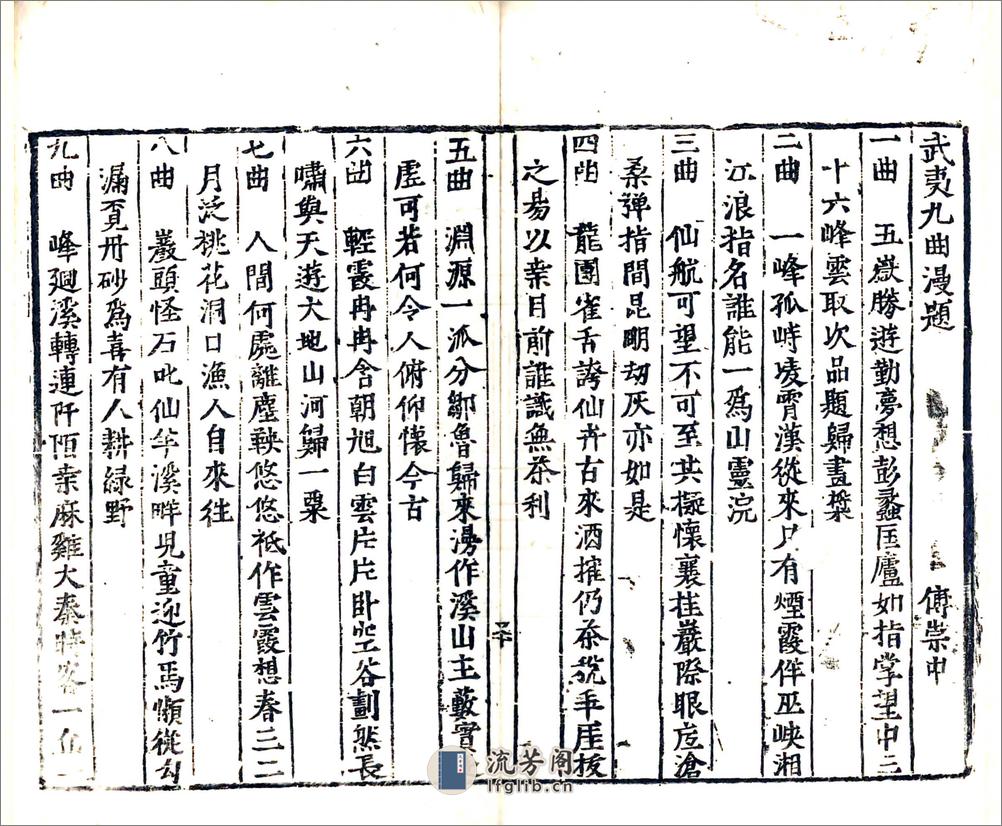 武夷九曲漫題 傅崇中
一曲 五嶽勝遊勤夢想彭蠡匡廬如指掌望中三
十六峰雲取次品題歸畫槳
二曲 一峰孤峙凌霄漢從來只有煙霞伴巫峽湘
江浪指名誰能一爲山靈浣
三曲 仙航可望不可至共擬懷襄挂巖際眼底滄
桑彈指間昆明刧灰亦如是
四曲 龍團雀舌誇仙卉古來酒搉仍茶稅年崖拔
之易以桒目前誰識無茶利
五曲 淵源一派分鄒魯歸來漫作溪山主藪實
虛可若何令人俯仰懷今古
二十
六曲 輕霞冉冉含朝旭白雲片片卧空谷劃然長
嘯與天遊大地山河歸一粟
七曲 人間何處離塵鞅悠悠祗作雲霞想春三二
月泛桃花洞口漁人自來往
八曲 巖頭怪石叱仙羊溪畔兒童迎竹馬懶從勾
漏覓丹砂爲喜有人耕綠野
九曲 峰廻溪轉連阡陌桒麻雞犬秦時客一
流芳阁
lfglib.cn